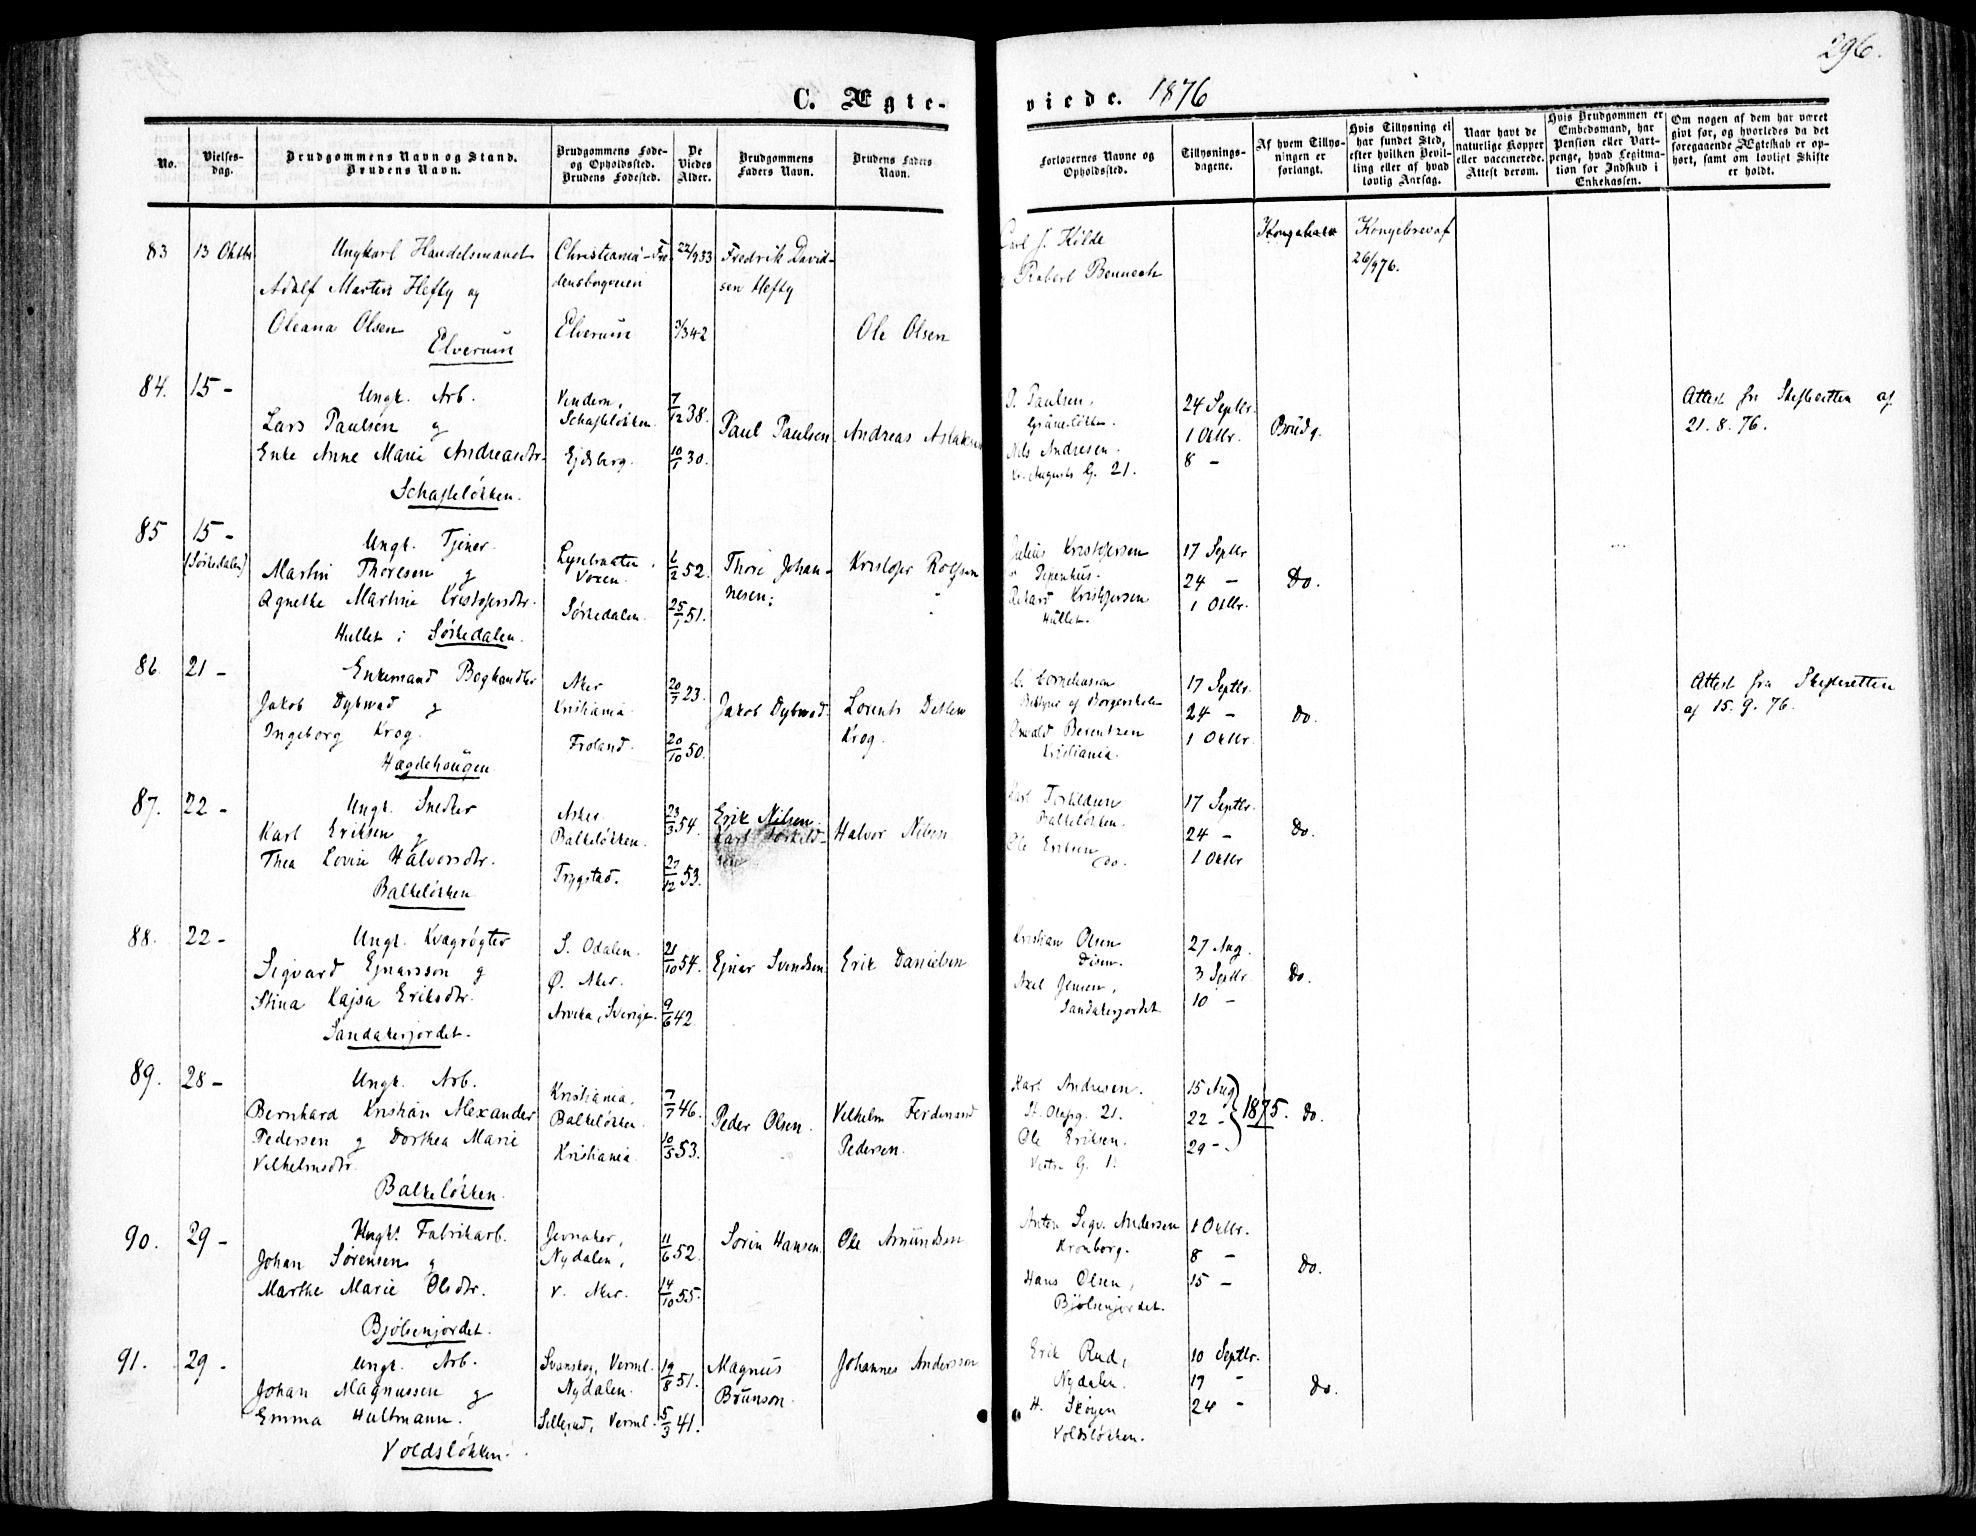 296.
C. Ægte-
viede. 1876
No.
Vielses-
dag.
Brudgommens Navn og Stand.
Brudens Navn.
Brudgommens Føde-
og Opholdssted.
Brudens Fødested.
De
Viedes
Alder.
Brudgommens
Faders Navn.
Brudens Faders
Navn.
Forlovernes Navne og
Opholdssted.
Tillysnings-
dagene.
Af hvem Tillys-
ningen er
forlangt.
Hvis Tillysning ei
har fundet Sted,
efter hvilken Bevil-
ling eller af hvad
lovlig Aarsag.
Naar havt de
naturlige Kopper
eller vaccinerede.
Attest derom.
Hvis Brudgommen er
Embedsmand, har
Pension eller Vart-
penge, hvad Legitima-
tion for Indskud i
Enkekassen.
Om nogen af dem har været
givt før, og hvorledes da det
foregaaende Ægteskab er op-
hørt, samt om lovligt Skifte
er holdt.
83 13 Oktbr
Ungkarl Handelsmand
Adolf Martin Hefty og
Oleana Olsen
Elverum
Christiania - Fre
densborgveien
Elverum
22/9 33
3/3 42
Fredrik David-
sen Hefty
Ole Olsen
Carl J. Kilde
Robert Bennech
Kongebrev af
26/9 76.
84. 15 -
Ungk. Arb.
Lars Paulsen g
Enke Anne Marie Andreasdtr.
Schafteløkken.
Vindern,
Schafteløkken.
Ejdsberg.
7/12 38.
10/1 30.
Paul Paulsen.
Andreas
Paulsen,
Grünerløkken.
Nils Andresen.
Augusts G. 21.
24 Septbr.
1 Oktbr.
8 -
Brudg.
Attest fra Skifteretten af
21. 8. 76.
85 15 -
(Sørkedalen)
Ungk. Tjener.
Martin Thoresen g
Agnethe Martine Kristofersdtr.
Hullet i Sørkedalen.
Voxen.
Sørkedalen.
6/2 52.
25/7 51.
Thore Johan-
nesen.
Kristofer Rolfsen
Julius Kristofersen
Pipenhus.
Rikard Kristofersen
Hullet.
17 Septbr
24 -
1 Oktbr.
Do.
86. 21 -
Enkemand Boghandler
Jakob Dybwad g
Ingeborg Krog.
Hægdehaugen.
Aker
Kristiania.
Froland.
20/7 23.
20/10 50.
Jakob Dybwad.
Lorents Detlew
Krog.
C. Corneliussen
Bestyrer af Borgerskolen
Osvald Berentzen
Kristiania.
17 Septbr.
24 -
1 Oktbr.
Do.
Attest fra Skifteretten
af 15. 9. 76.
87. 22 -
Ungk. Snedker
Karl Eriksen g
Thea Lovise Halvorsdtr.
Balkeløkken
Asker.
Balkeløkken.
Trygstad.
23/3 54.
27/12 53.
Erik Nilsen.
Karl Torkild-
sen
Halvor Nilsen
Karl Torkildsen
Balkeløkken.
Ole Eriksen
do.
17 Septbr.
24 -
1 Oktbr
Do.
88. 22 -
Ungk. Kvægrøgter
Sigvard Ejnarsson g
Stina Kajsa Eriksdtr.
Sandakerjordet.
S. Odalen.
Ø. Aker.
Arvika, Sverige.
21/10 54.
9/6 42
Ejnar Svendsen.
Erik Danielsen
Kristian Olsen
Disen.
Axel Jensen,
Sandakerjordet.
27 Aug.
3 Septbr.
10 -
Do.
89. 28 -
Ungk. Arb.
Bernhard Kristian Alexander
Pedersen g Dorthea Marie
Vilhelmsdtr.
Balkeløkken.
Kristiania.
Balkeløkken.
Kristiania.
7/7 46.
10/5 53.
Peder Olsen.
Vilhelm Ferdinand
Pedersen.
Karl Andresen.
St. Olafsg. 21.
Ole Eriksen.
Vestre G. 1.
15 Aug
22 -
29 -
1875.
Do.
90. 29 -
Ungk. Fabrikarb.
Johan Sørensen g
Marthe Marie Olsdtr.
Bjølsenjordet.
Jevnaker,
Nydalen,
V. Aker.
11/6 52.
14/10 55.
Sørin Hansen.
Ole Amundsen
Anton Sigv. Andersen
Kronborg.
Hans Olsen,
Bjølsenjordet.
1 Oktbr.
8 -
15 -
Do.
91. 29 -
Ungk. Arb.
Johan Magnussen g
Emma Hultmann.
Voldsløkken.
Svanskog, Verml.
Nydalen.
Sillerud, Verml.
19/8 51.
5/3 41.
Magnus
Brunson.
Johannes Andersson
Erik Rud,
Nydalen.
H. Skøyen
Voldsløkken.
10 Septbr.
17 -
24 -
Do.